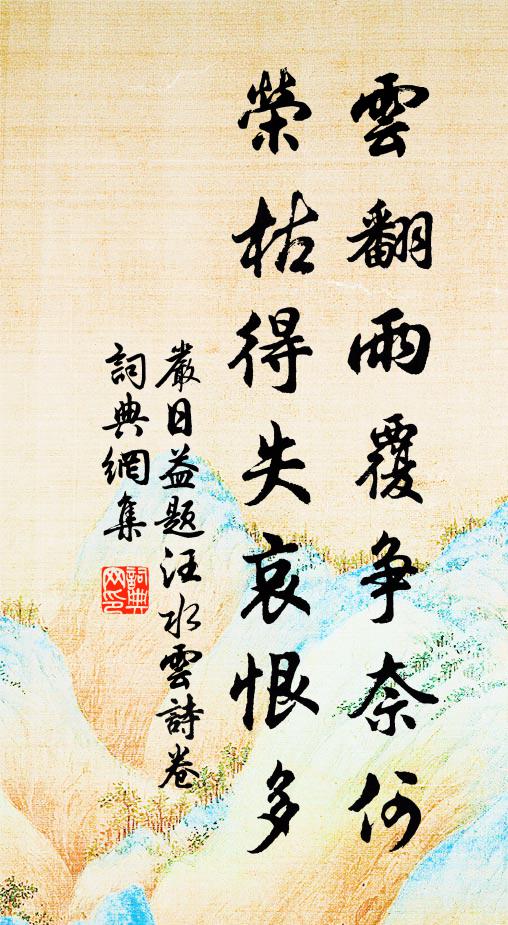 雲翻雨覆争奈何
榮枯得失哀恨多
嚴日益題汪水雲詩卷
詞典網集
詞典
网印